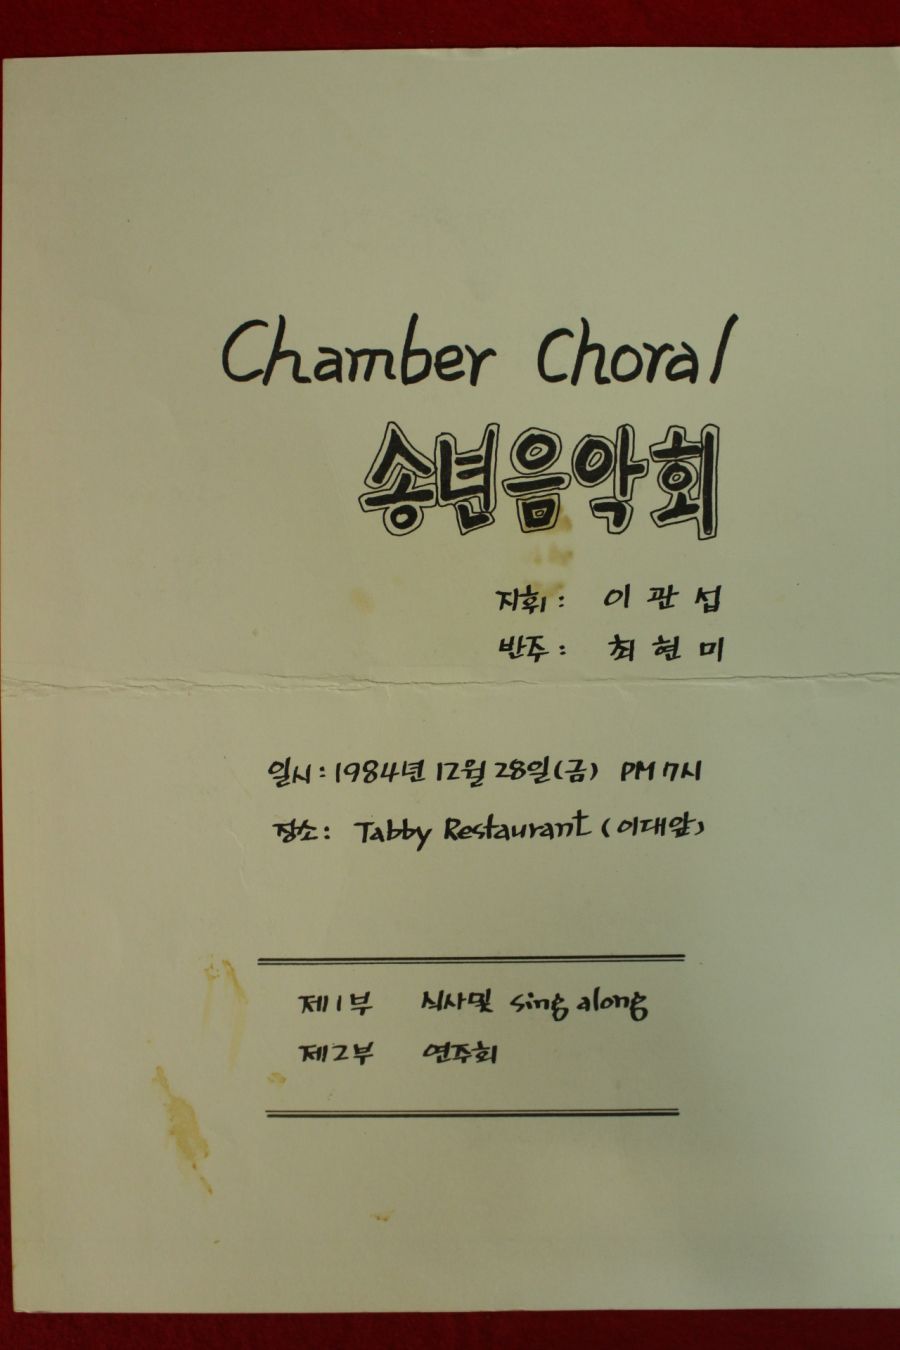 Chamber Choral
송년음악회
지휘: 이관섭
반주: 최현미
일시: 1984년 12월 28일(금) PM 7시
장소: Tabby Restaurant (이대앞)
제1부 식사및 sing along
제2부 연주회